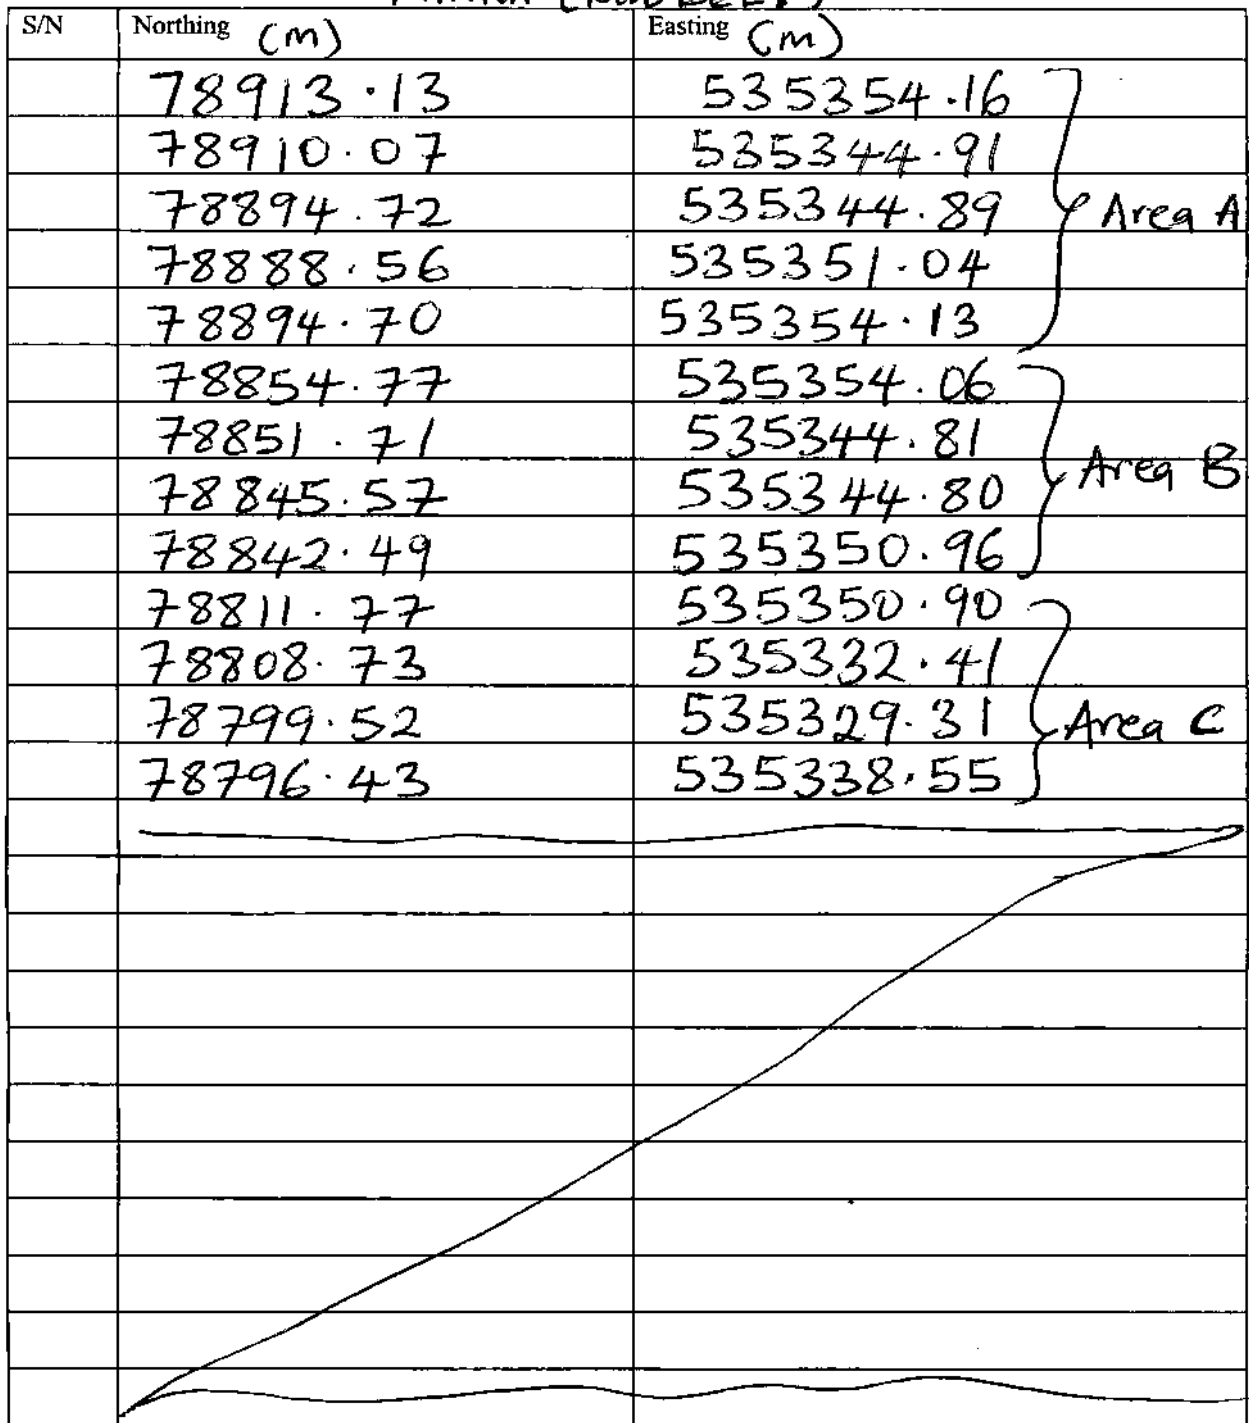 S/N Northing (m) Easting (m)
78913.13 535354.16
78910.07 535344.91
78894.72 535344.89 Area A
78888.56 535351.04
78894.70 535354.13
78854.77 535354.06
78851.71 535344.81
78845.57 535344.80 Area B
78842.49 535350.96
78811.77 535350.90
78808.73 535332.41
78799.52 535329.31 Area C
78796.43 535338.55